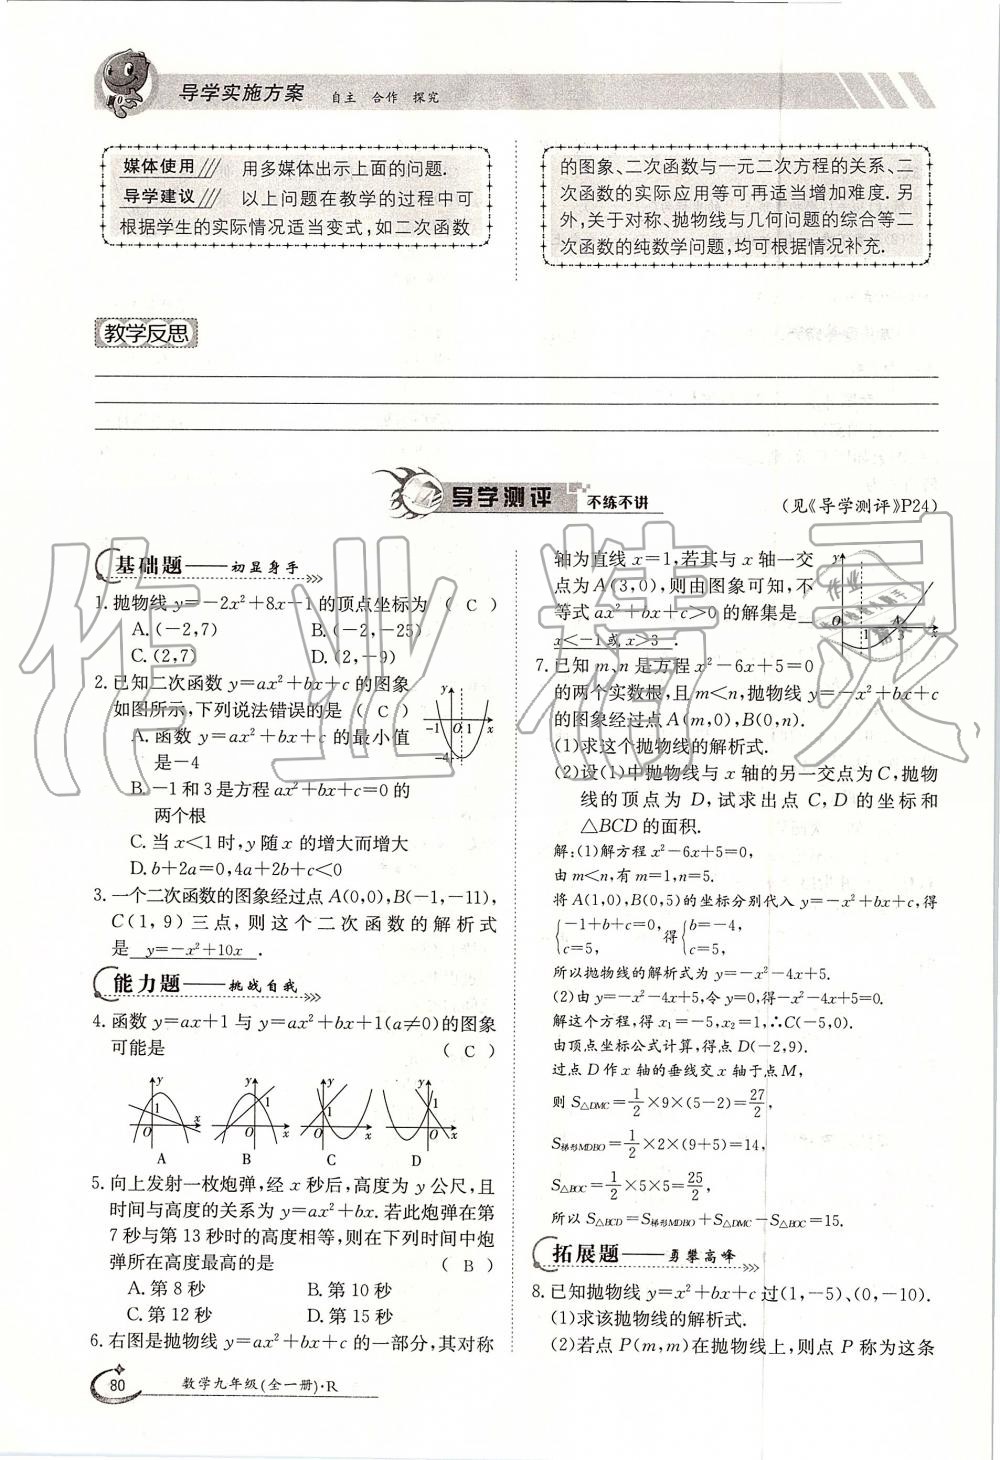 导学实施方案 自主 合作 探究
媒体使用 用多媒体出示上面的问题.
导学建议 以上问题在教学的过程中可
根据学生的实际情况适当变式,如二次函数
的图象、二次函数与一元二次方程的关系、二
次函数的实际应用等可再适当增加难度.另
外,关于对称、抛物线与几何问题的综合等二
次函数的纯数学问题,均可根据情况补充.
教学反思
导学测评 不练不讲
(见《导学测评》P24)
基础题——初显身手
1.抛物线y=-2x²+8x-1的顶点坐标为 ( C )
A.(-2,7) B.(-2,-25)
C.(2,7) D.(2,-9)
2.已知二次函数y=ax²+bx+c的图象
如图所示,下列说法错误的是 ( C )
A.函数y=ax²+bx+c的最小值
是-4
B.-1和3是方程ax²+bx+c=0的
两个根
C.当x<1时,y随x的增大而增大
D.b+2a=0,4a+2b+c<0
y
-1 O 1 x
-4
3.一个二次函数的图象经过点A(0,0),B(-1,-11),
C(1,9)三点,则这个二次函数的解析式
是 y=-x²+10x .
能力题——挑战自我
4.函数y=ax+1与y=ax²+bx+1(a≠0)的图象
可能是 ( C )
y 1 O x
y 1 O x
y 1 O x
y 1 O x
A B C D
5.向上发射一枚炮弹,经x秒后,高度为y公尺,且
时间与高度的关系为y=ax²+bx.若此炮弹在第
7秒与第13秒时的高度相等,则在下列时间中炮
弹所在高度最高的是 ( B )
A.第8秒 B.第10秒
C.第12秒 D.第15秒
6.右图是抛物线y=ax²+bx+c的一部分,其对称
轴为直线x=1,若其与x轴一交
点为A(3,0),则由图象可知,不
等式ax²+bx+c>0的解集是
x<-1或x>3 .
y
O 1 A 3 x
7.已知m、n是方程x²-6x+5=0
的两个实数根,且m<n,抛物线y=-x²+bx+c
的图象经过点A(m,0),B(0,n).
(1)求这个抛物线的解析式.
(2)设(1)中抛物线与x轴的另一交点为C,抛物
线的顶点为D,试求出点C,D的坐标和
△BCD的面积.
解:(1)解方程x²-6x+5=0,
由m<n,有m=1,n=5.
将A(1,0),B(0,5)的坐标分别代入y=-x²+bx+c,得
{-1+b+c=0, c=5, 得{b=-4, c=5,
所以抛物线的解析式为y=-x²-4x+5.
(2)由y=-x²-4x+5,令y=0,得-x²-4x+5=0.
解这个方程,得x₁=-5,x₂=1,∴C(-5,0).
由顶点坐标公式计算,得点D(-2,9).
过点D作x轴的垂线交x轴于点M,
则S△DMC=1/2×9×(5-2)=27/2,
S梯形MDBO=1/2×2×(9+5)=14,
S△BOC=1/2×5×5=25/2,
所以S△BCD=S梯形MDBO+S△DMC-S△BOC=15.
拓展题——勇攀高峰
8.已知抛物线y=x²+bx+c过(1,-5)、(0,-10).
(1)求该抛物线的解析式.
(2)若点P(m,m)在抛物线上,则点P称为这条
80 数学九年级(全一册)·R
作业精灵